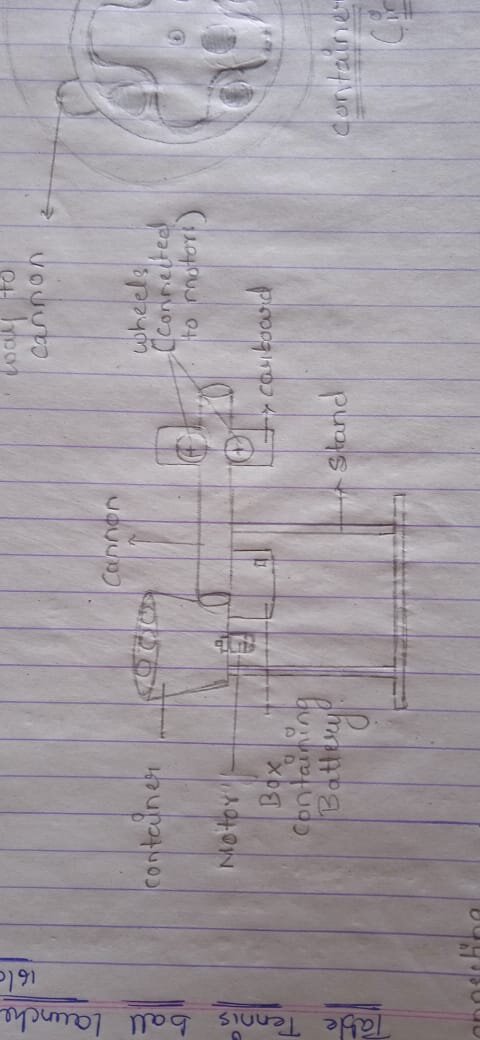 Table Tennis ball launche
16/
container
Motor
Box
containing
Battery
cannon
wheels
(connected
to motors)
carboard
stand
way to
cannon
container
(in